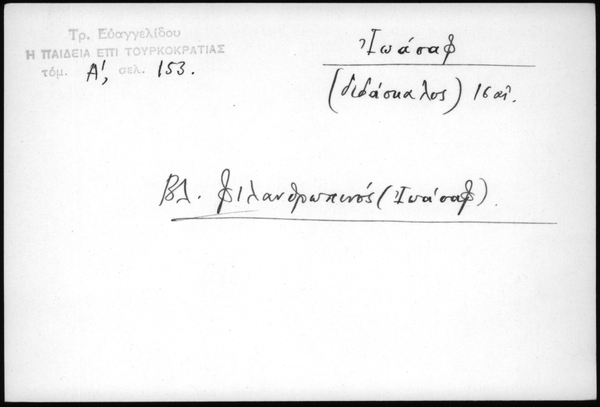 Τρ. Εὐαγγελίδου
Η ΠΑΙΔΕΙΑ ΕΠΙ ΤΟΥΡΚΟΚΡΑΤΙΑΣ
τόμ. Α', σελ. 153.
Ἰωάσαφ
(διδάσκαλος) 16 αἰ.
Βλ. Φιλανθρωπινός (Ἰωάσαφ).